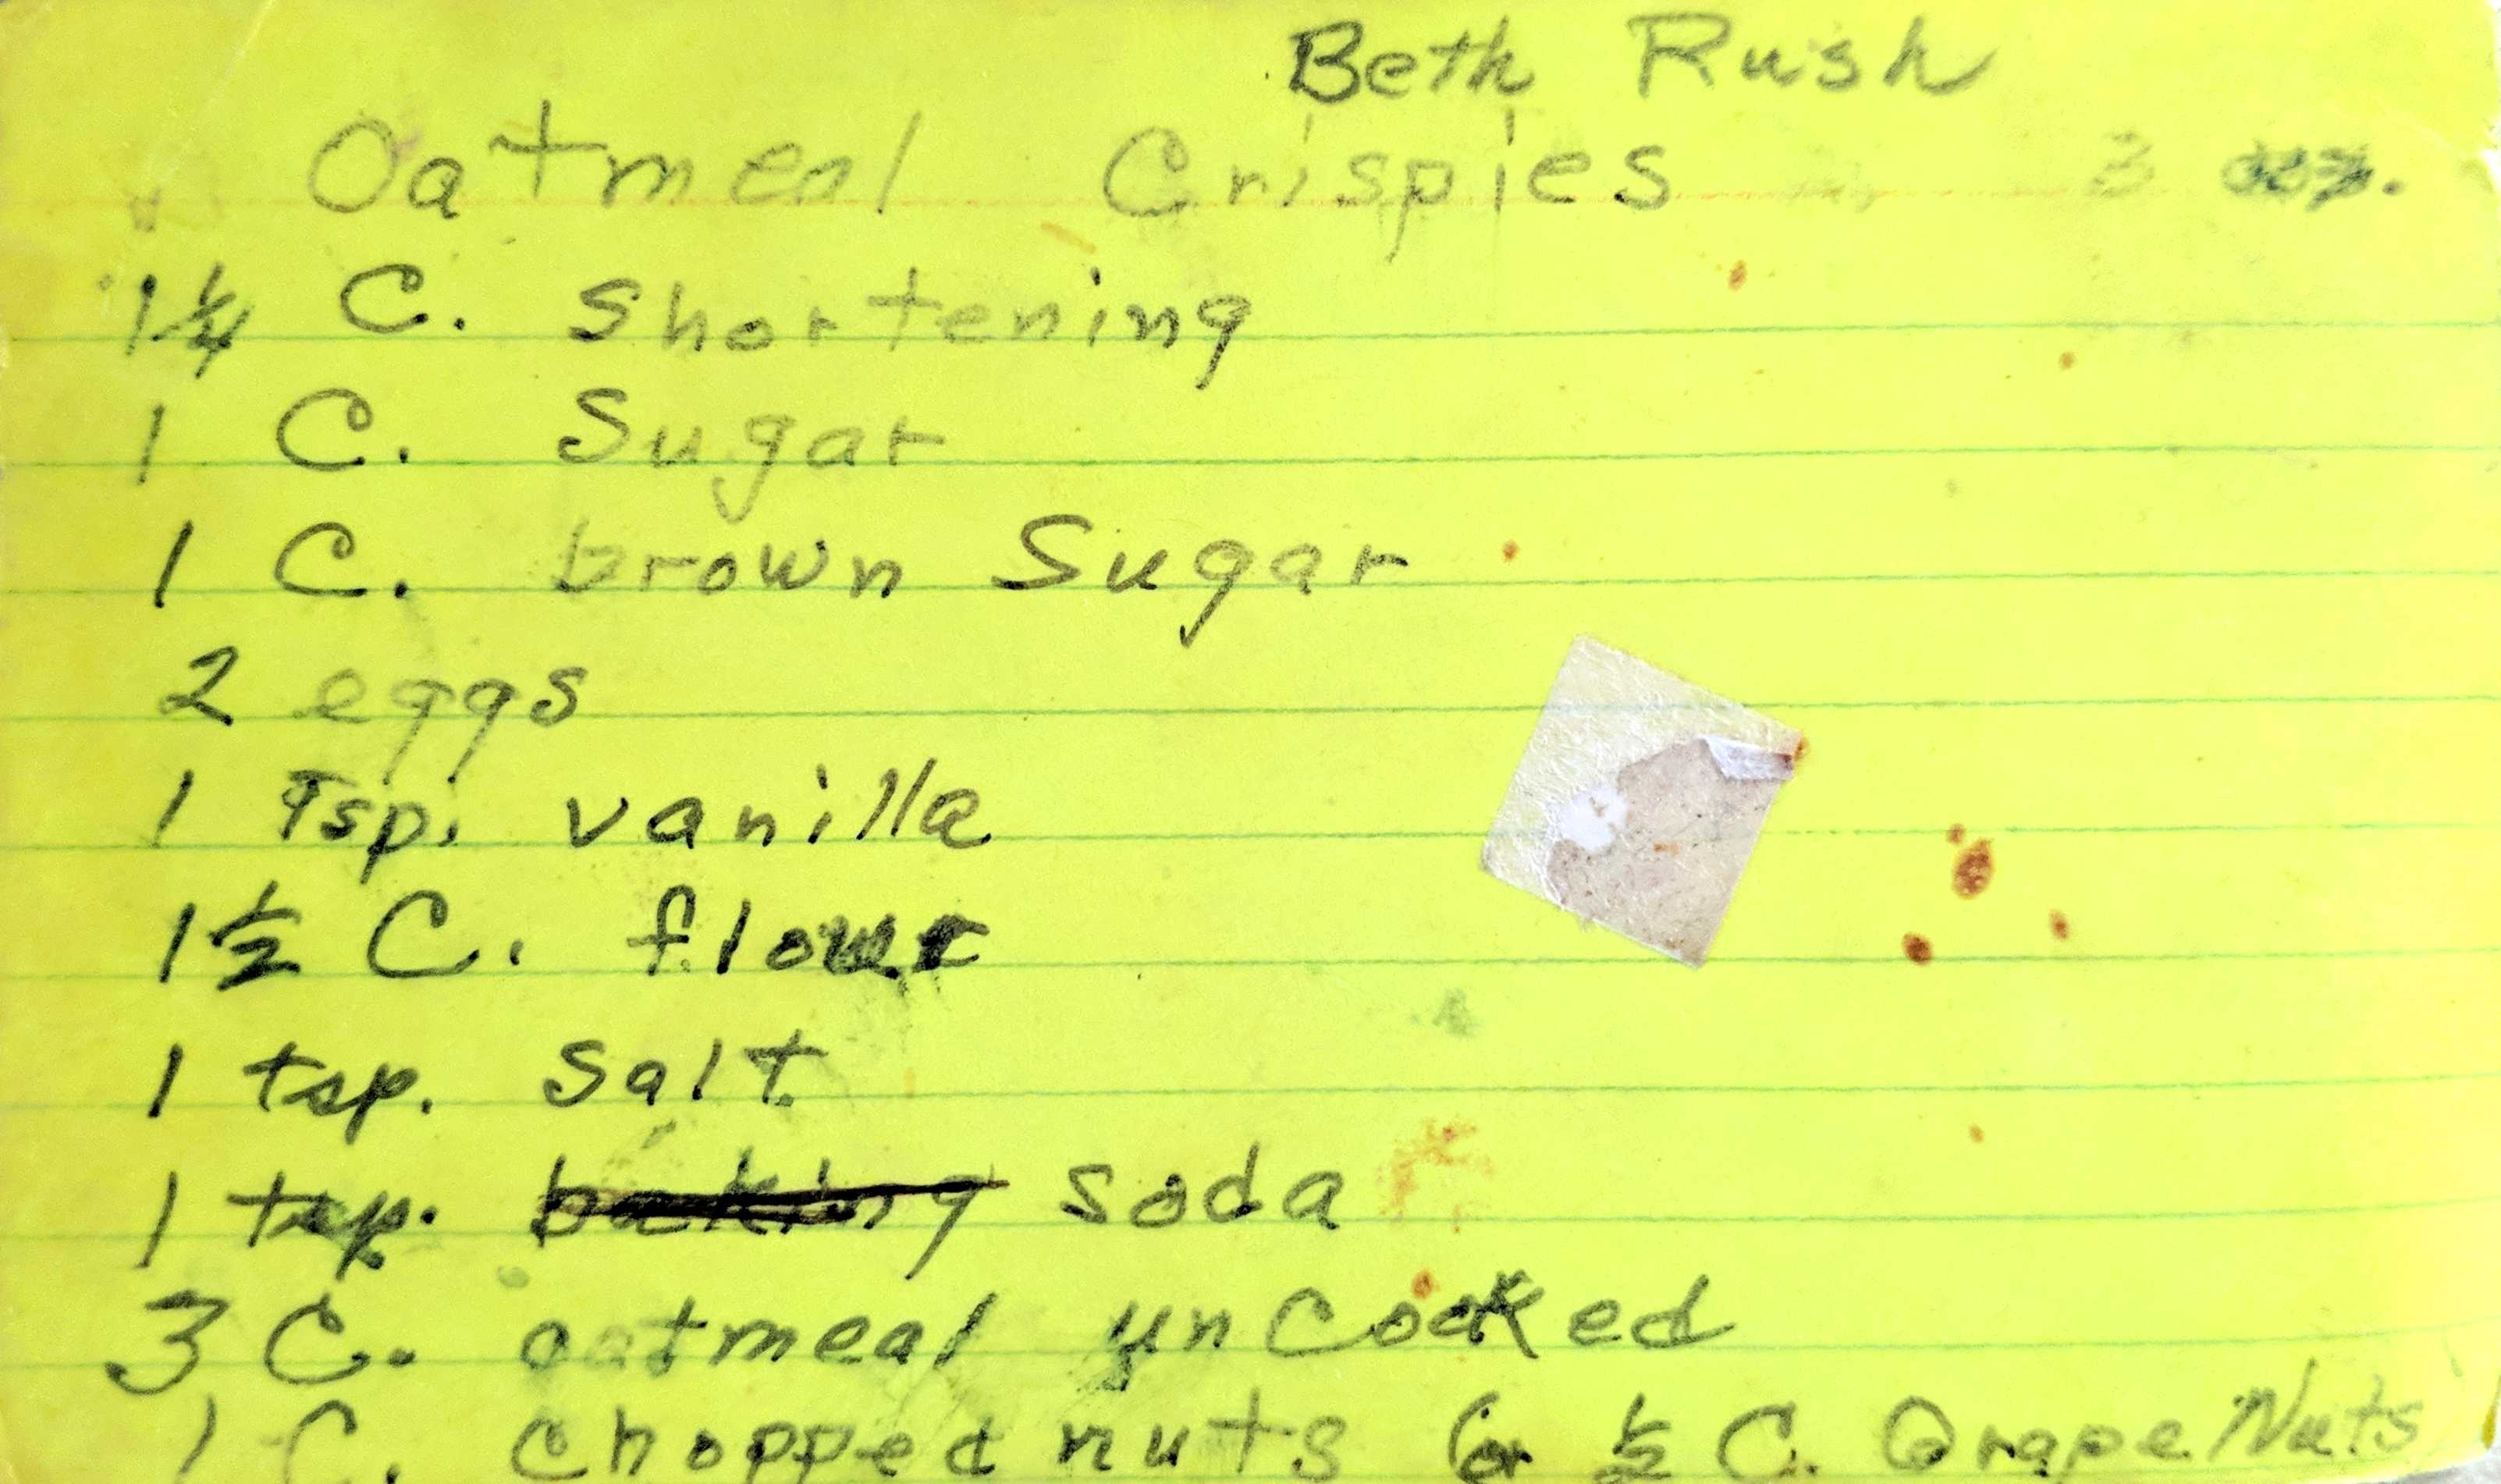 Beth Rush
Oatmeal Crispies 3 doz.
1 1/4 C. Shortening
1 C. Sugar
1 C. brown Sugar
2 eggs
1 Tsp. vanilla
1 1/2 C. flour
1 tsp. salt
1 tsp. baking soda
3 C. oatmeal uncooked
1 C. chopped nuts (or 1/2 C. Grape Nuts